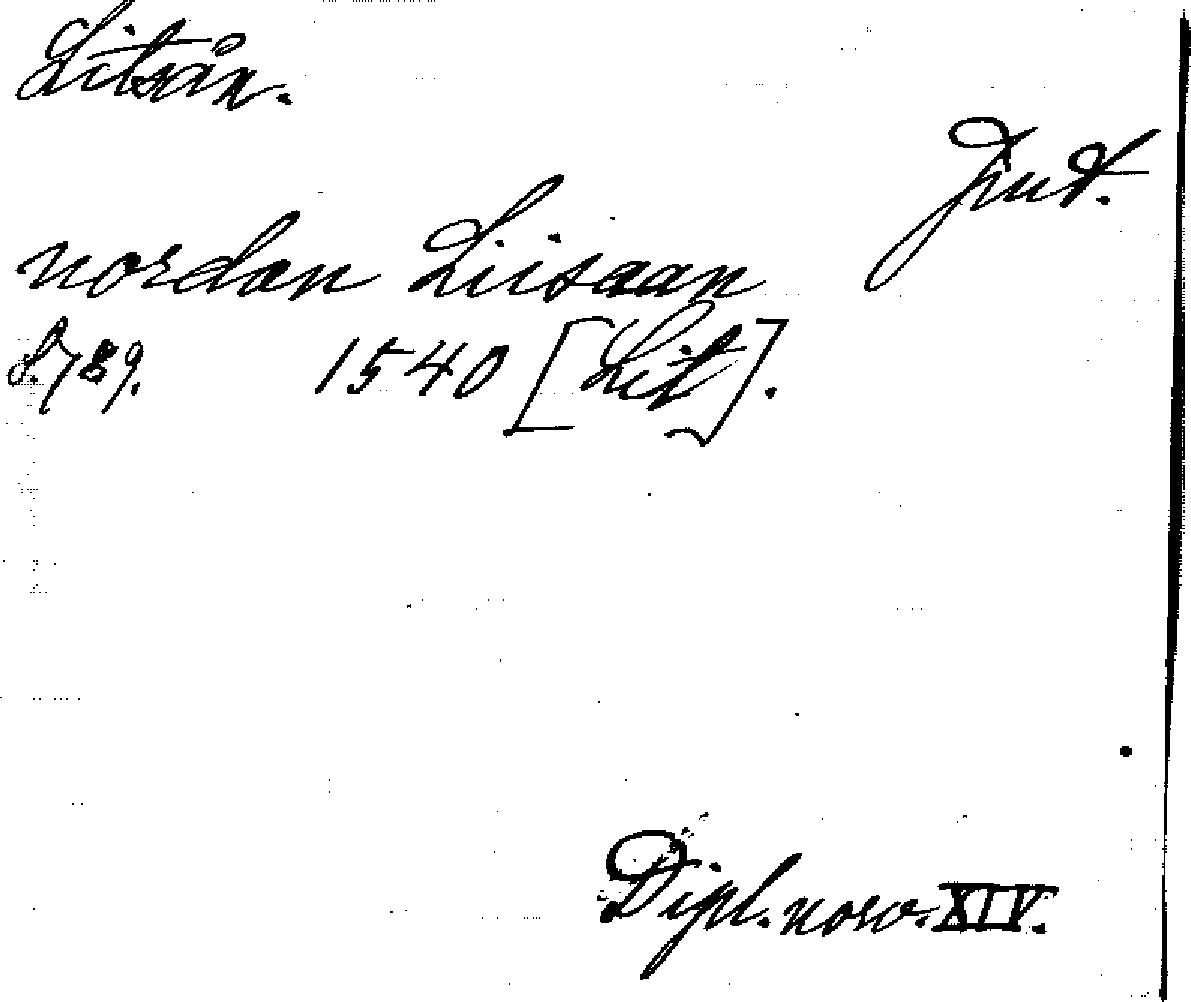 Litsån.
Jmt.
nordan Liisaan
S. 789. 1540 [Lit].
Dipl. norv. XIV.